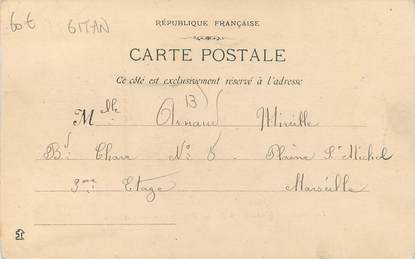 60€ GITAN
RÉPUBLIQUE FRANÇAISE
CARTE POSTALE
Ce côté est exclusivement réservé à l'adresse
13
Mlle Arnaud Mireille
Bd Chave No 5. Plaine St Michel
3me Etage Marseille